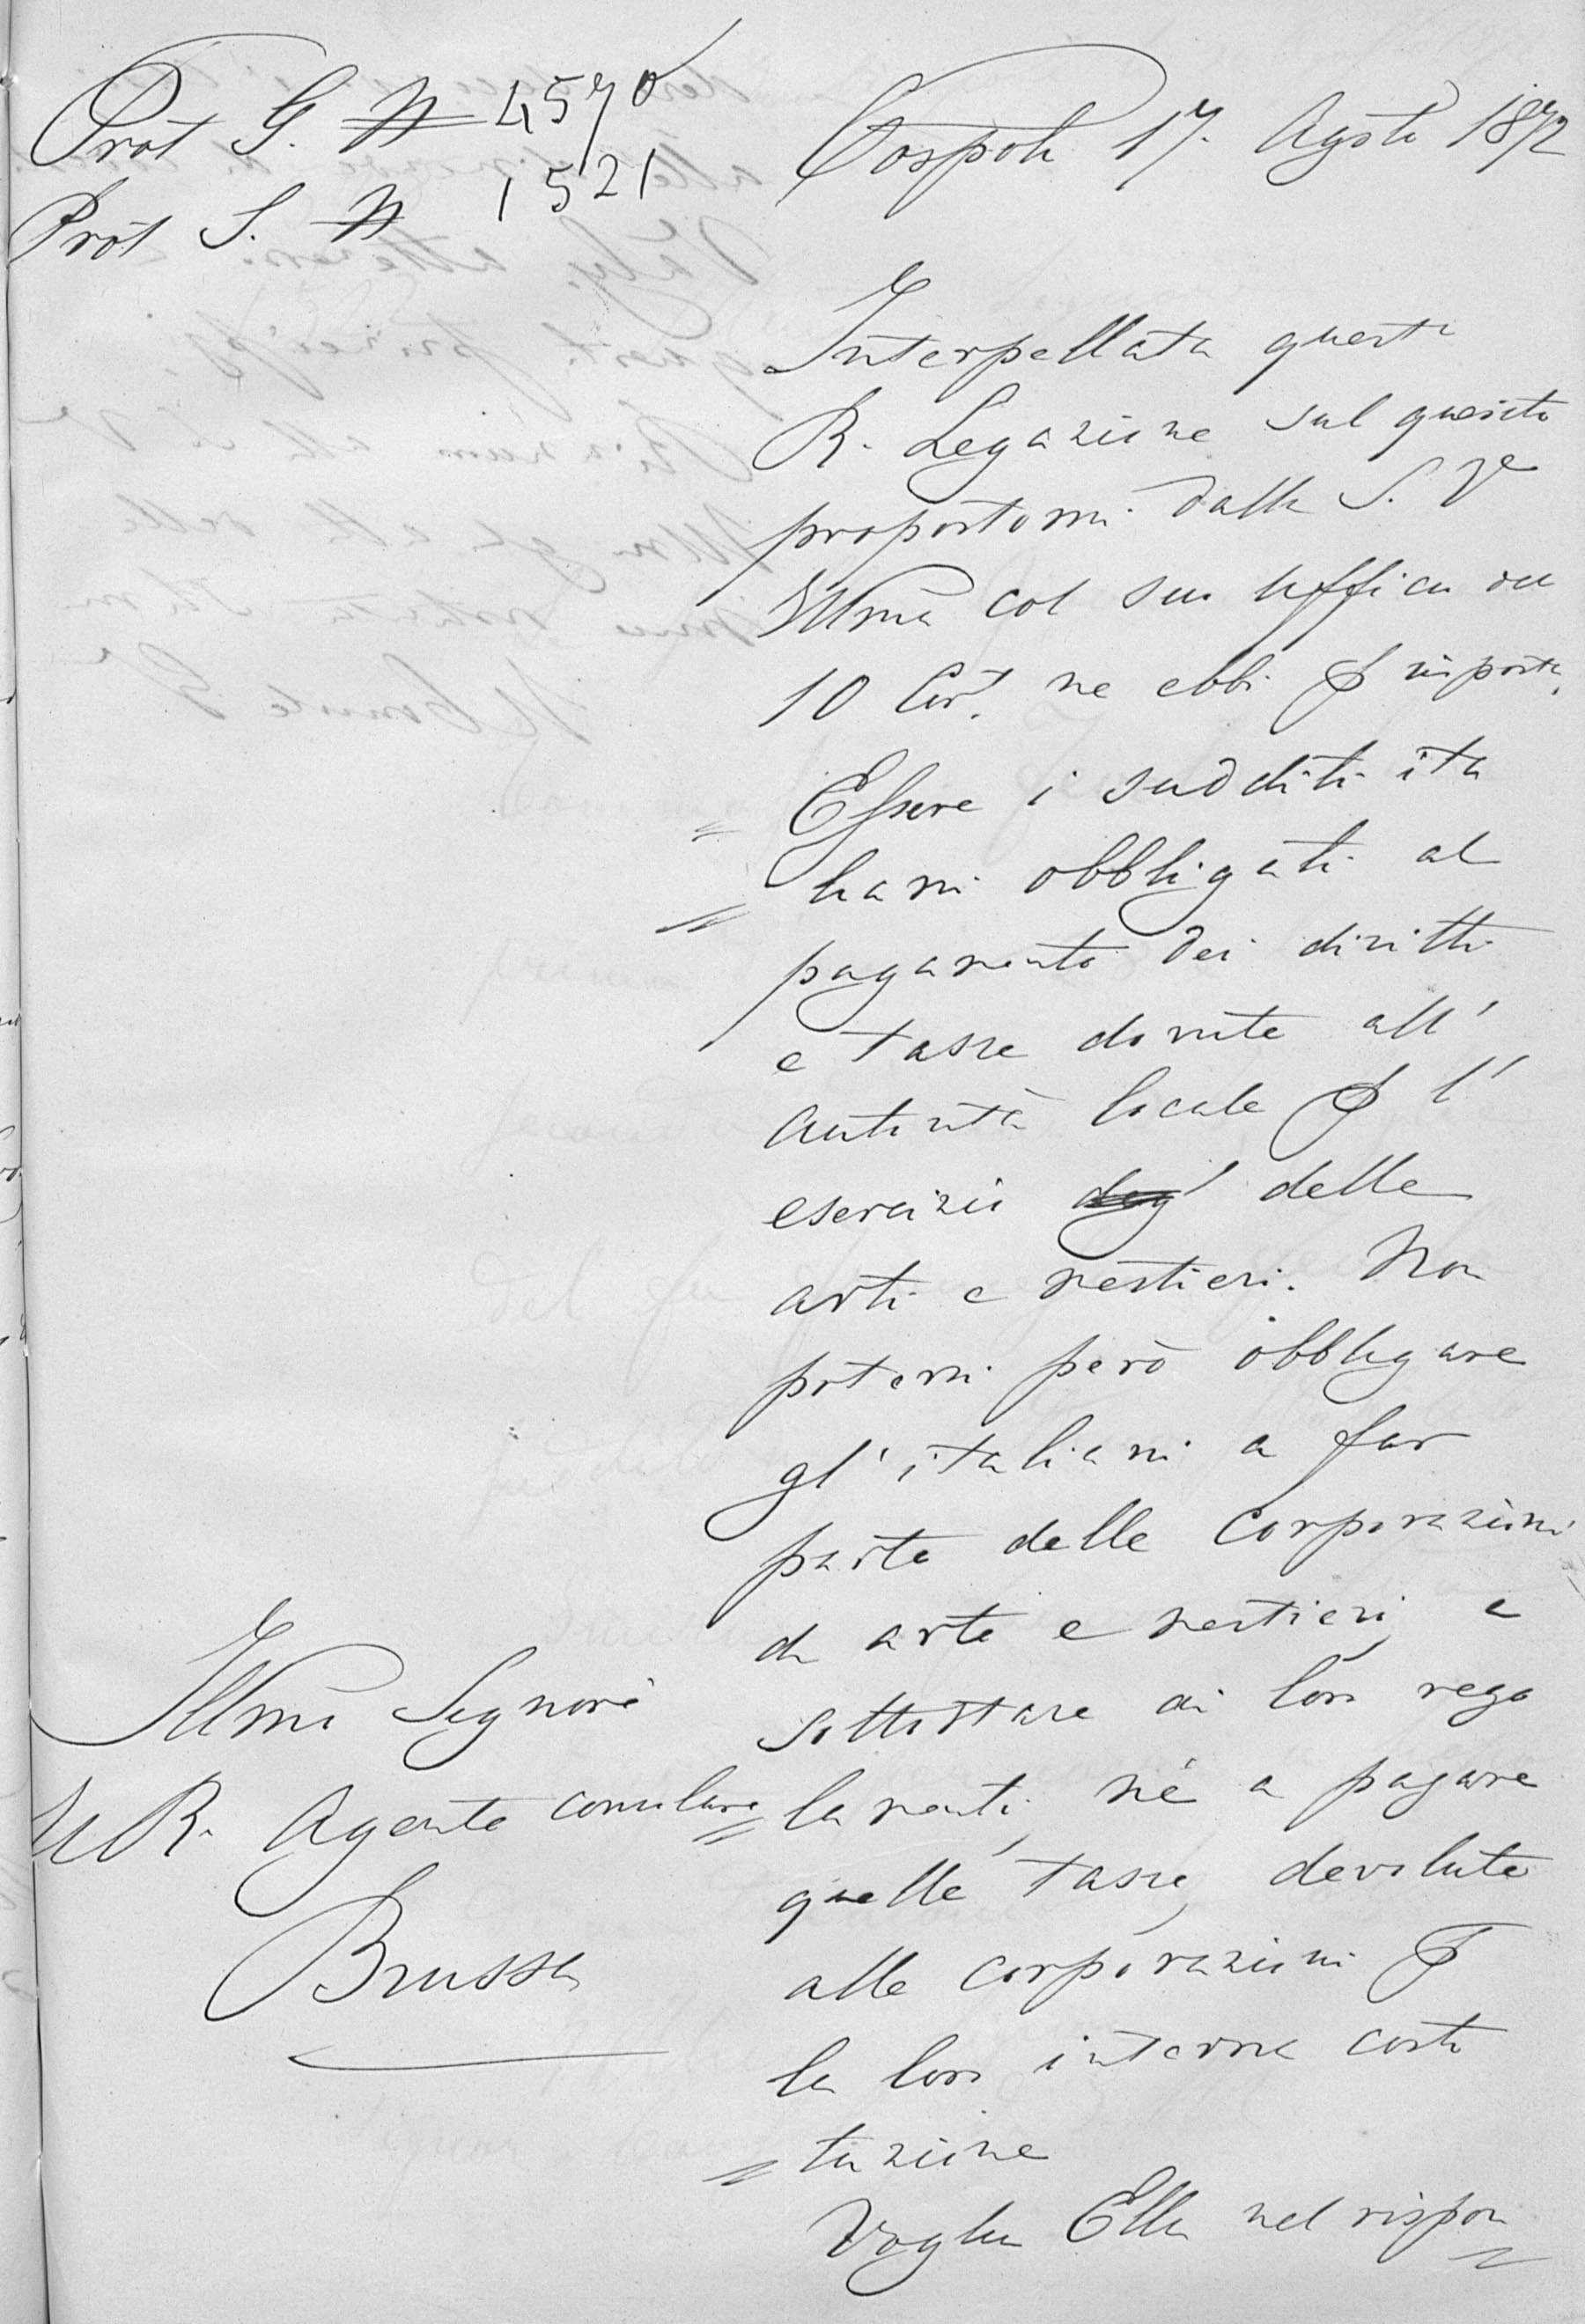 Prot G. N 4570
Prot S. N 1521
Cospoli 17. Agosto 1872
Interpellata questa
R. Legazione sul quesito
propostomi dalla S. Va
Illma col suo uffizio del
10 Cort. ne ebbi per risposta,
Essere i sudditi ita
liani obbligati al
pagamento dei diritti
e tasse dovute all'
autorità locale per l'
esercizio degl' delle
arti e mestieri. Non
potersi però obbligare
gl' italiani a far
parte delle Corporazioni
di arte e mestieri, e
sottostare ai loro rego
lamenti, nè a pagare
quelle tasse, devolute
alle corporazioni per
la loro interna costi
tuzione
Voglia Ella nel rispon
Illmo Signore
Il R. Agente consolare
Brussa